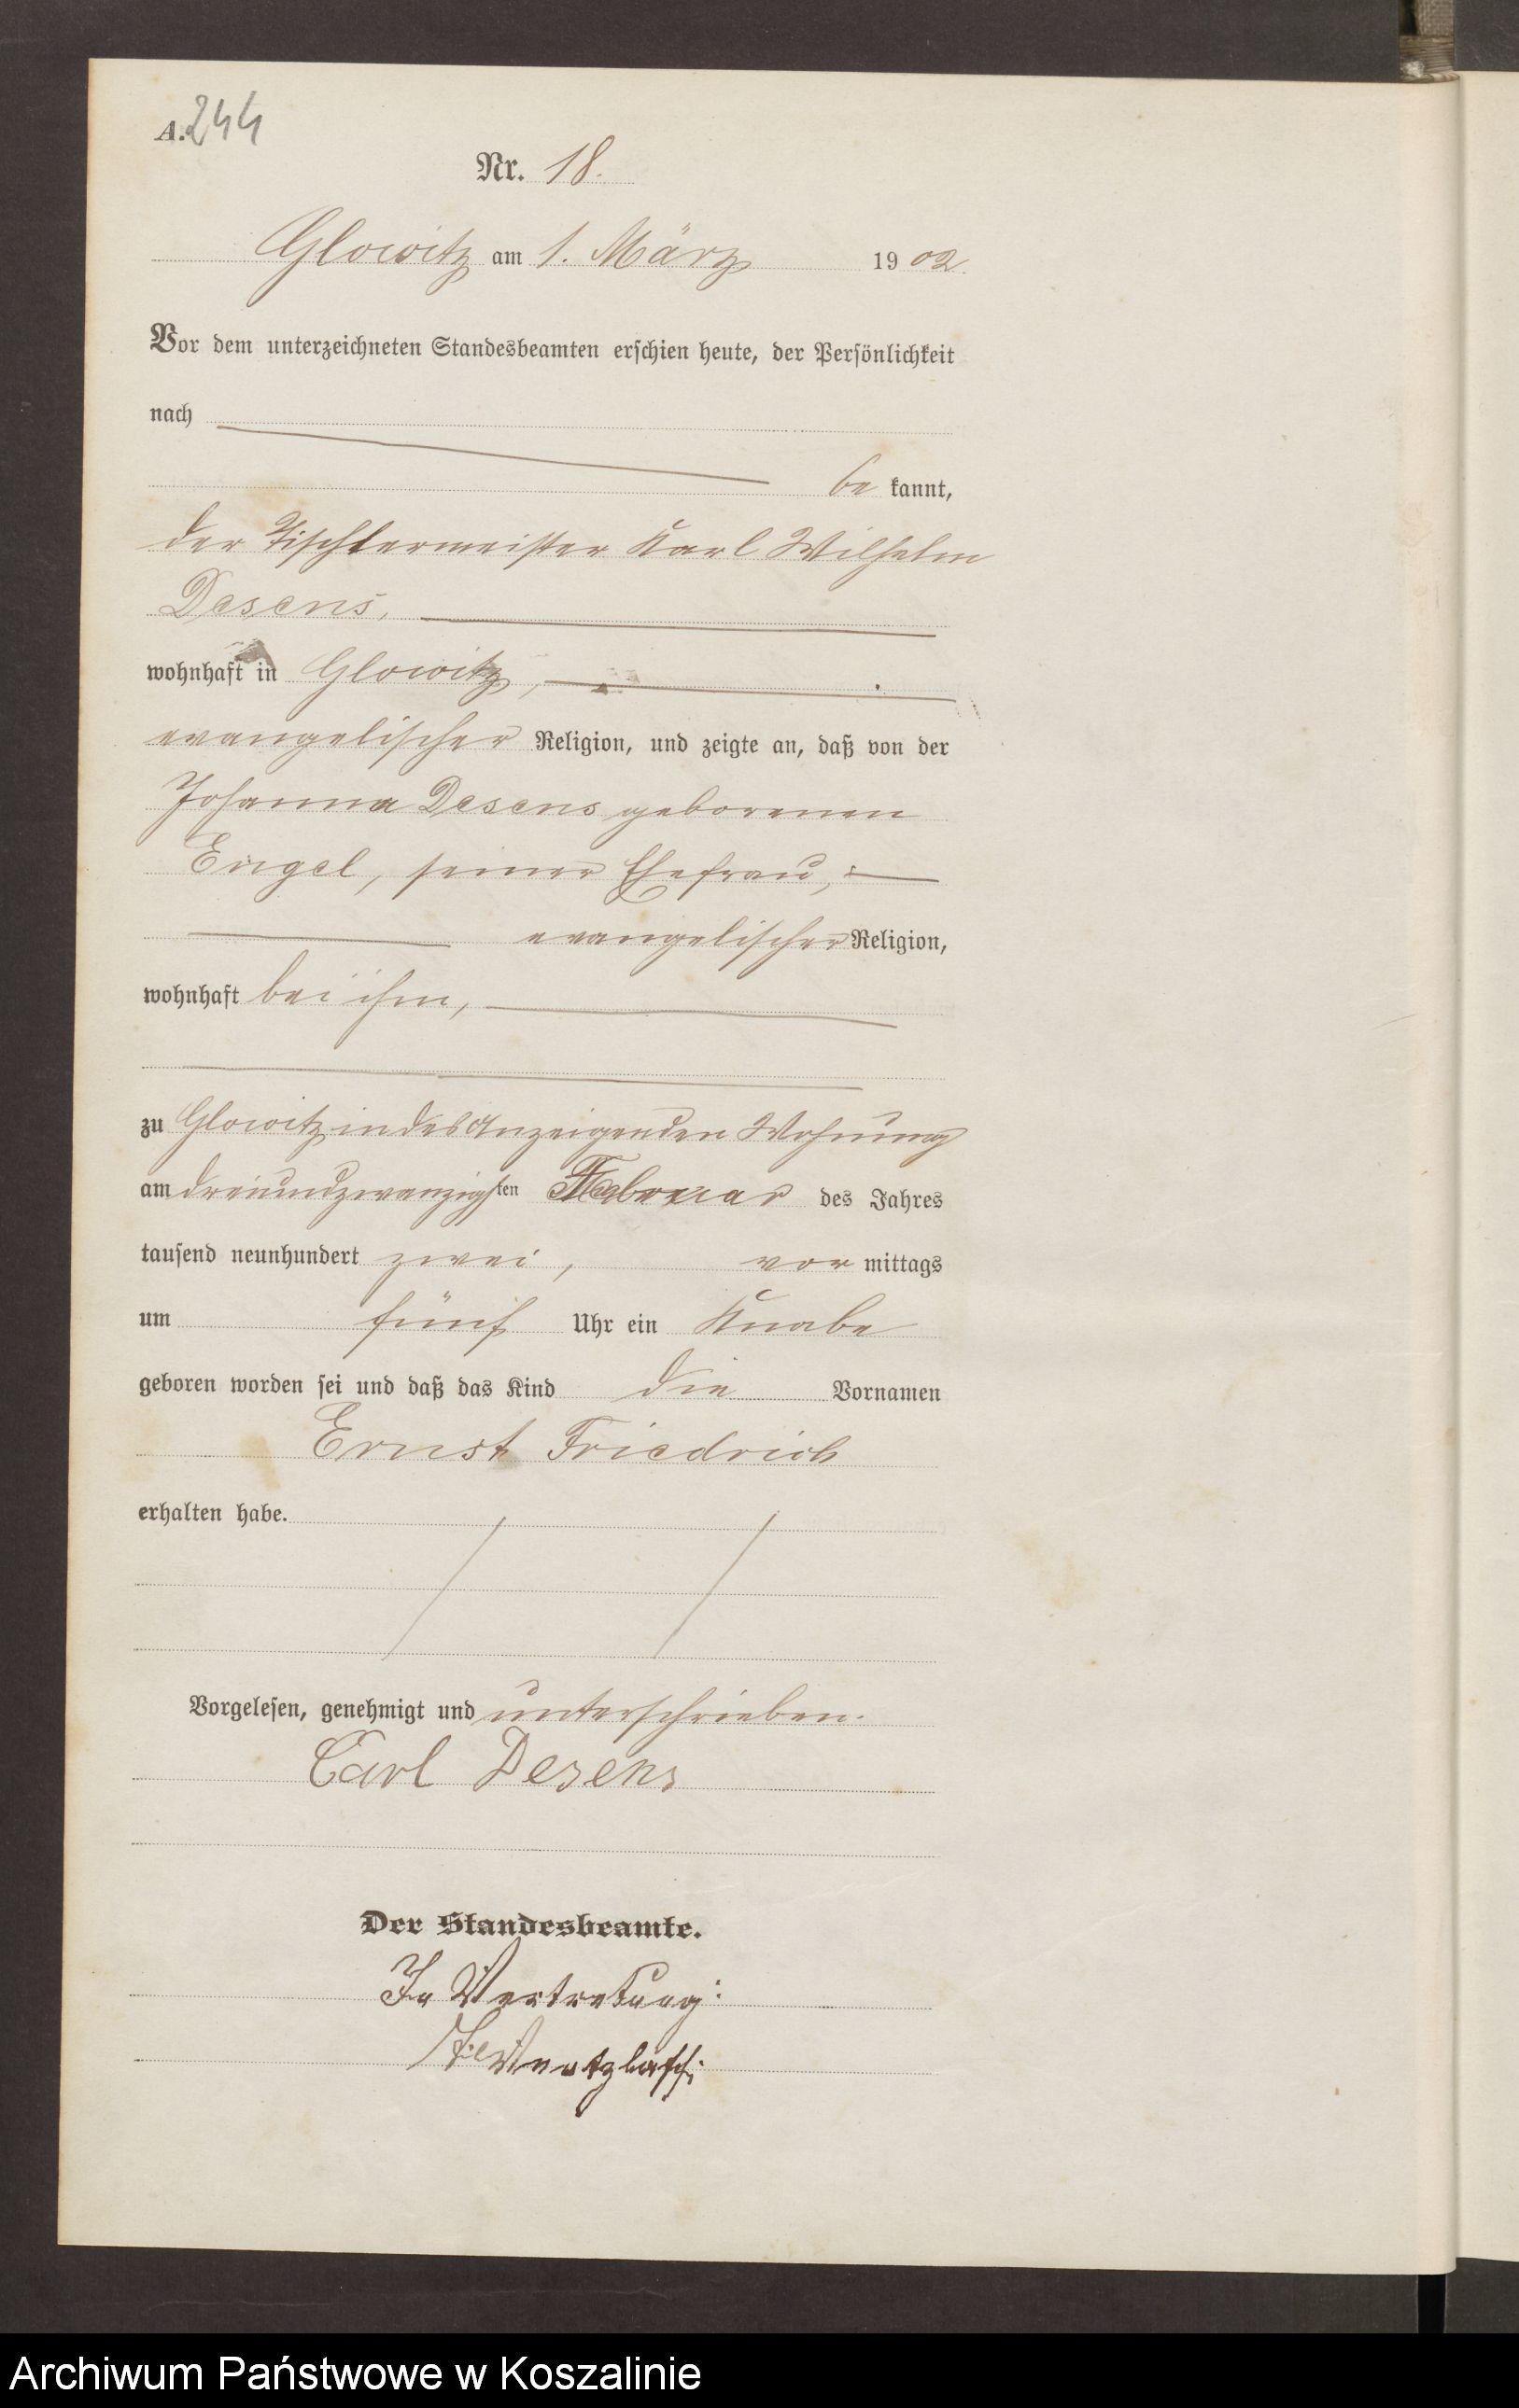 A. 244
Nr. 18.
Glowitz am 1. März 1902.
Vor dem unterzeichneten Standesbeamten erschien heute, der Persönlichkeit
nach
be kannt,
der Tischlermeister Karl Wilhelm
Desens,
wohnhaft in Glowitz,
evangelischer Religion, und zeigte an, daß von der
Johanna Desens geborenen
Engel, seiner Ehefrau,
evangelischer Religion,
wohnhaft bei ihm,
zu Glowitz in des Anzeigenden Wohnung
am dreiundzwanzigsten Februar des Jahres
tausend neunhundert zwei, vor mittags
um fünf Uhr ein Knabe
geboren worden sei und daß das Kind die Vornamen
Ernst Friedrich
erhalten habe.
Vorgelesen, genehmigt und unterschrieben.
Carl Desens
Der Standesbeamte.
In Vertretung:
Archiwum Państwowe w Koszalinie